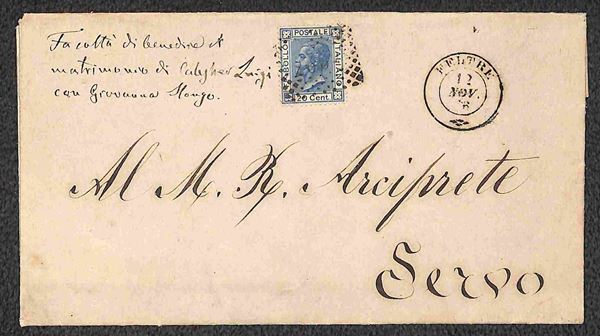 Facoltà di benedire il
matrimonio di Luigi
con Giovanna
BOLLO POSTALE ITALIANO
20 Cent.
FELTRE
12
NOV.
Al M. R. Arciprete
Servo